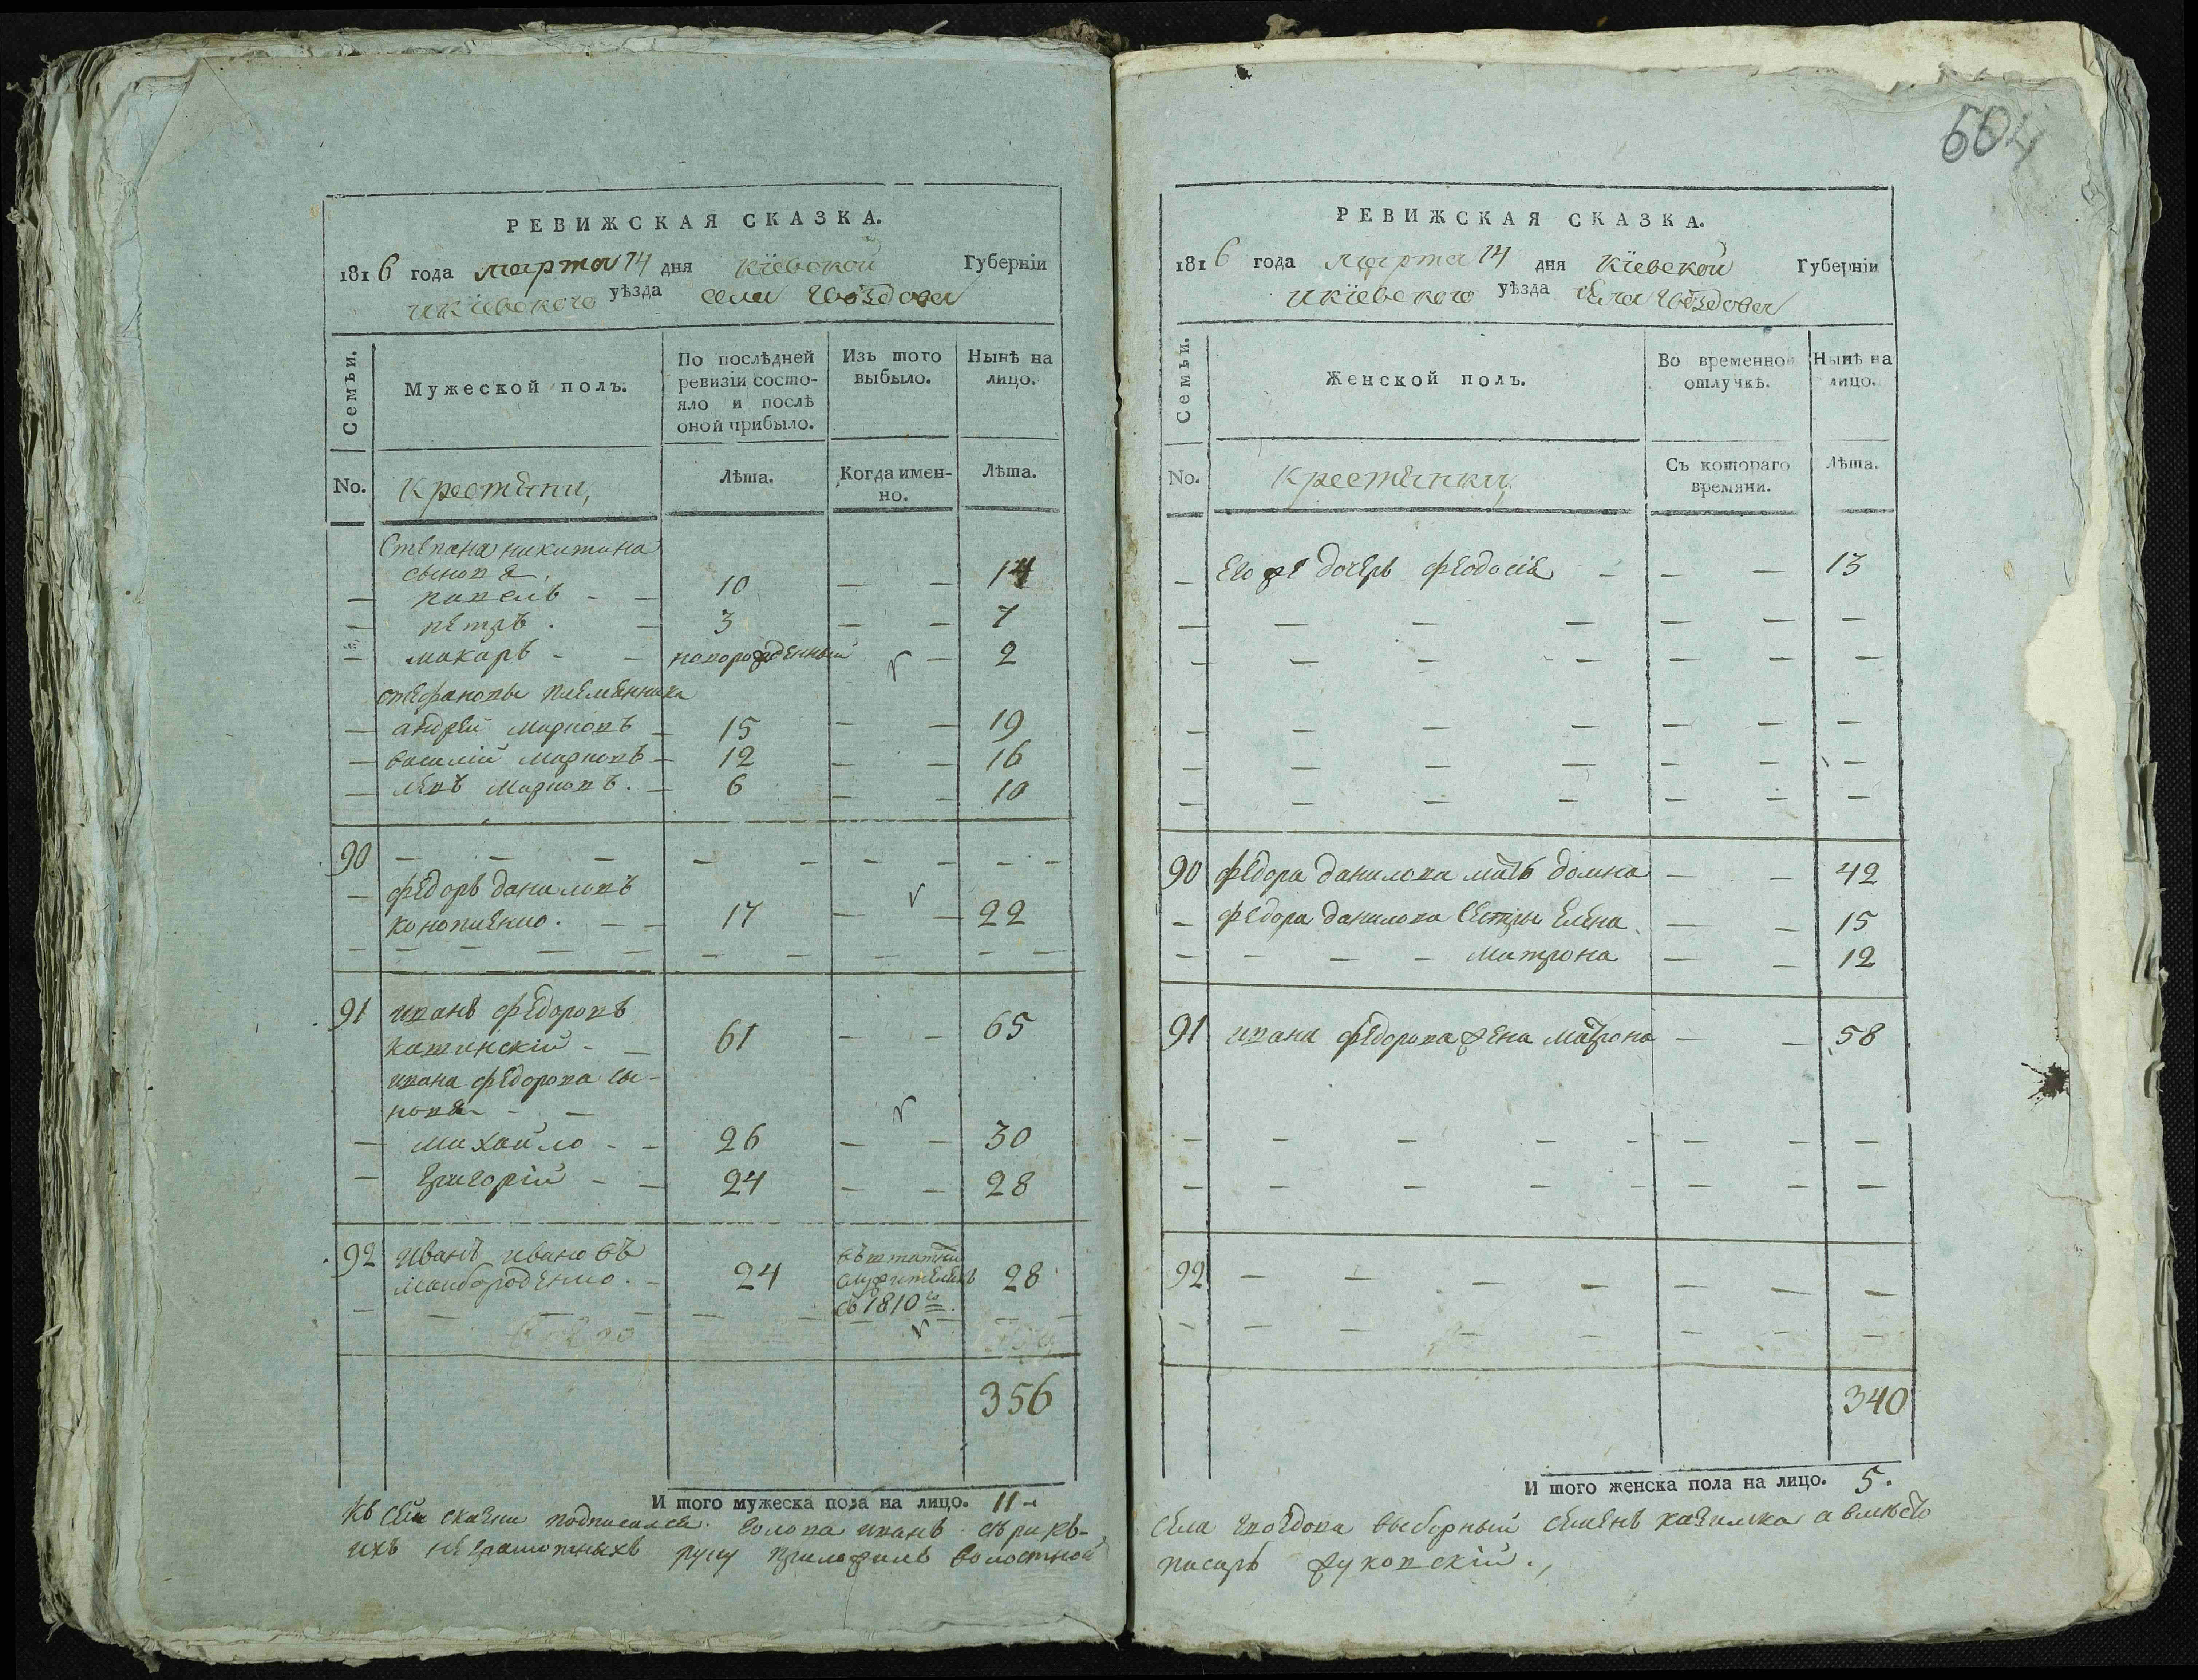 504
РЕВИЖСКАЯ СКАЗКА.
1816 года марта 14 дня Кіевской Губерніи
икіевского уѣзда села Гвоздова
Семьи.
Мужеской полъ.
По послѣдней ревизіи состояло и послѣ оной прибыло.
Изъ того выбыло.
Нынѣ на лицо.
No.
Крестяни,
Лѣта.
Когда именно.
Лѣта.
Степана никитина
сыновя,
— павелъ - — 10 — — 14
— петръ . — 3 — — 7
— макаръ - — новорожденный — 2
стефановы племенника
— андрей марковъ — 15 — — 19
— василій марковъ — 12 — — 16
— левъ марковъ . — 6 — — 10
90 — — — — — — — — —
— федоръ даниловъ
конопленко . — — 17 — — 22
— — — — — — — — — —
91 иванъ федоровъ
катинскій - — 61 — — 65
ивана федорова сы-
новя - —
— михайло - — 26 — — 30
— григорій - — 24 — — 28
92 Иванъ ивановъ
майбороденко . — 24 28
въ штатни
служителехъ
съ 1810го
356
И того мужеска пола на лицо. 11
Къ сей сказки подписался. голова иванъ
ихъ неграмотныхъ руку приложилъ волостной
РЕВИЖСКАЯ СКАЗКА.
1816 года марта 14 дня Кіевской Губерніи
икіевского уѣзда села Гвоздова
Семьи.
Женской полъ.
Во временной отлучкѣ.
Нынѣ на лицо.
No.
Крестянки,
Съ котораго времяни.
Лѣта.
— его же дочерь феодосія — — — 13
— — — — — — —
— — — — — — —
— — — — — — —
— — — — — — —
— — — — — — —
90 федора данилова мать домна — — 42
— федора данилова сестры Елена — — 15
— — — — матрона — — 12
91 ивана федорова жена матрона — — 58
— — — — — — — —
— — — — — — — —
92 — — — — — — —
— — — — — — — —
340
И того женска пола на лицо. 5.
села гвоздова выборный семенъ а вместо
писарь жуковскій .,